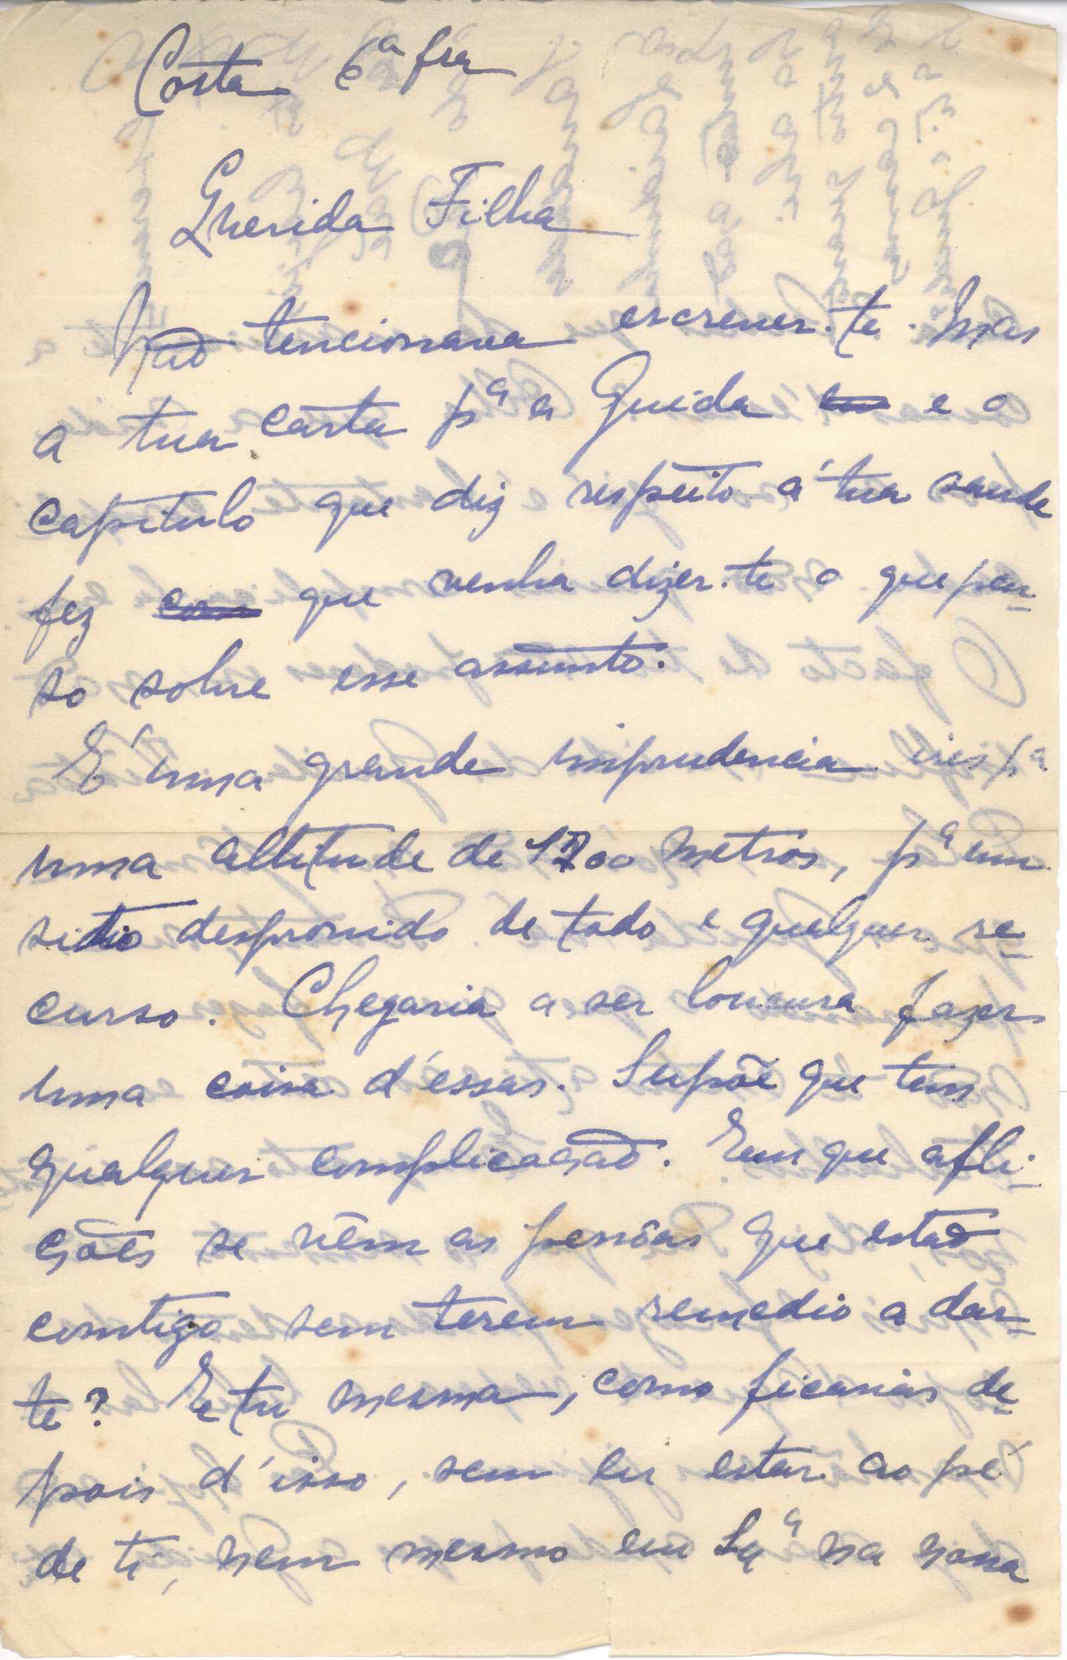 Costa 6ª fra
Querida Filha
Não tencionava escrever-te. Mas
a tua carta pª a Guida e o
capitulo que diz respeito á tua saude
fez com que venha dizer-te o que pen-
so sobre esse assunto.
É uma grande imprudencia ires pª
uma altitude de 1700 metros, pª um
sitio desprovido de todo e qualquer re-
curso. Chegaria a ser loucura fazer
uma coisa d'éssas. Supõe que tens
qualquer complicação. Em que afli-
ções se vêm as pessôas que estão
comtigo sem terem remedio a dar-
te? E tu mesma, como ficarias de-
pois d'isso, sem eu estar ao pé
de ti, nem mesmo em Lxª na nossa